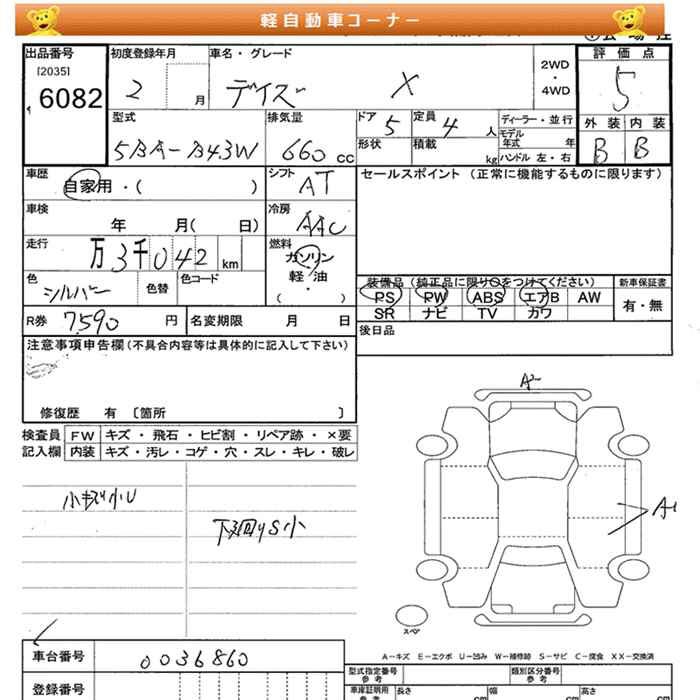 軽自動車コーナー
出品番号
[2035]
6082
初度登録年月
2 月
車名・グレード
デイズ X
2WD
・
4WD
評価点
5
型式
5BA-B43W
排気量
660 CC
ドア
5
定員
4 人
形状
積載
kg
ディーラー・並行
モデル年式 年
ハンドル 左・右
外装 内装
B B
車歴
自家用・( )
シフト
AT
セールスポイント (正常に機能するものに限ります)
車検
年 月( 日)
冷房
AAC
走行
万3千042km
燃料
ガソリン
軽・油
( ・ )
色
シルバー
色替
色コード
装備品 (純正品に限り○をつけてください)
PS PW ABS エアB AW
SR ナビ TV カワ
新車保証書
有・無
R券 7,590 円
名変期限 月 日
後日品
注意事項申告欄 (不具合内容等は具体的に記入して下さい)
修復歴 有 〔箇所 〕
検査員 FW キズ・飛石・ヒビ割・リペア跡・×要
記入欄 内装 キズ・汚レ・コゲ・穴・スレ・キレ・破レ
下廻りS小
A2
A1
スペア
A-キズ E-エクボ U-凹み W-補修跡 S-サビ C-腐食 XX-交換済
車台番号
0036860
登録番号
型式指定番号
参考
類別区分番号
参考
車庫証明用
参考
長さ cm
幅 cm
高さ cm